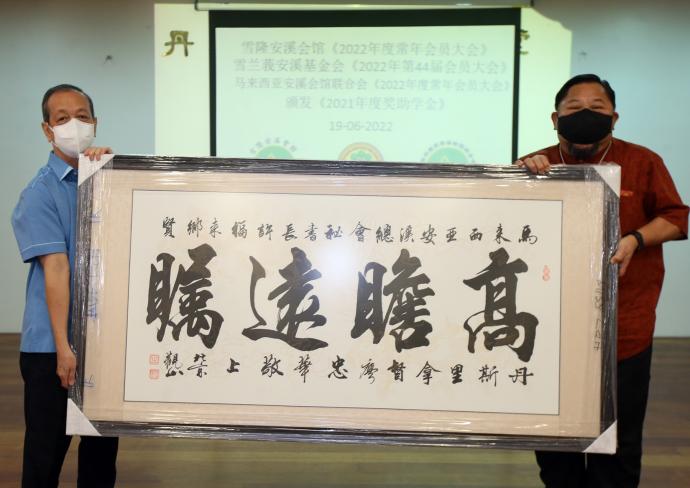 丹
雪隆安溪会馆《2022年度常年会员大会》
雪兰莪安溪基金会《2022年第44届会员大会》
马来西亚安溪会馆联合会《2022年度常年会员大会》
颁发《2021年度奖助学金》
19-06-2022
馬来西亚安溪總會秘書長許福来鄉賢
高瞻遠矚
丹斯里拿督廖忠華敬上